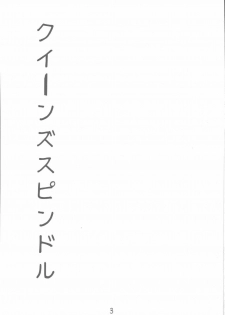 クイーンズスピンドル
3